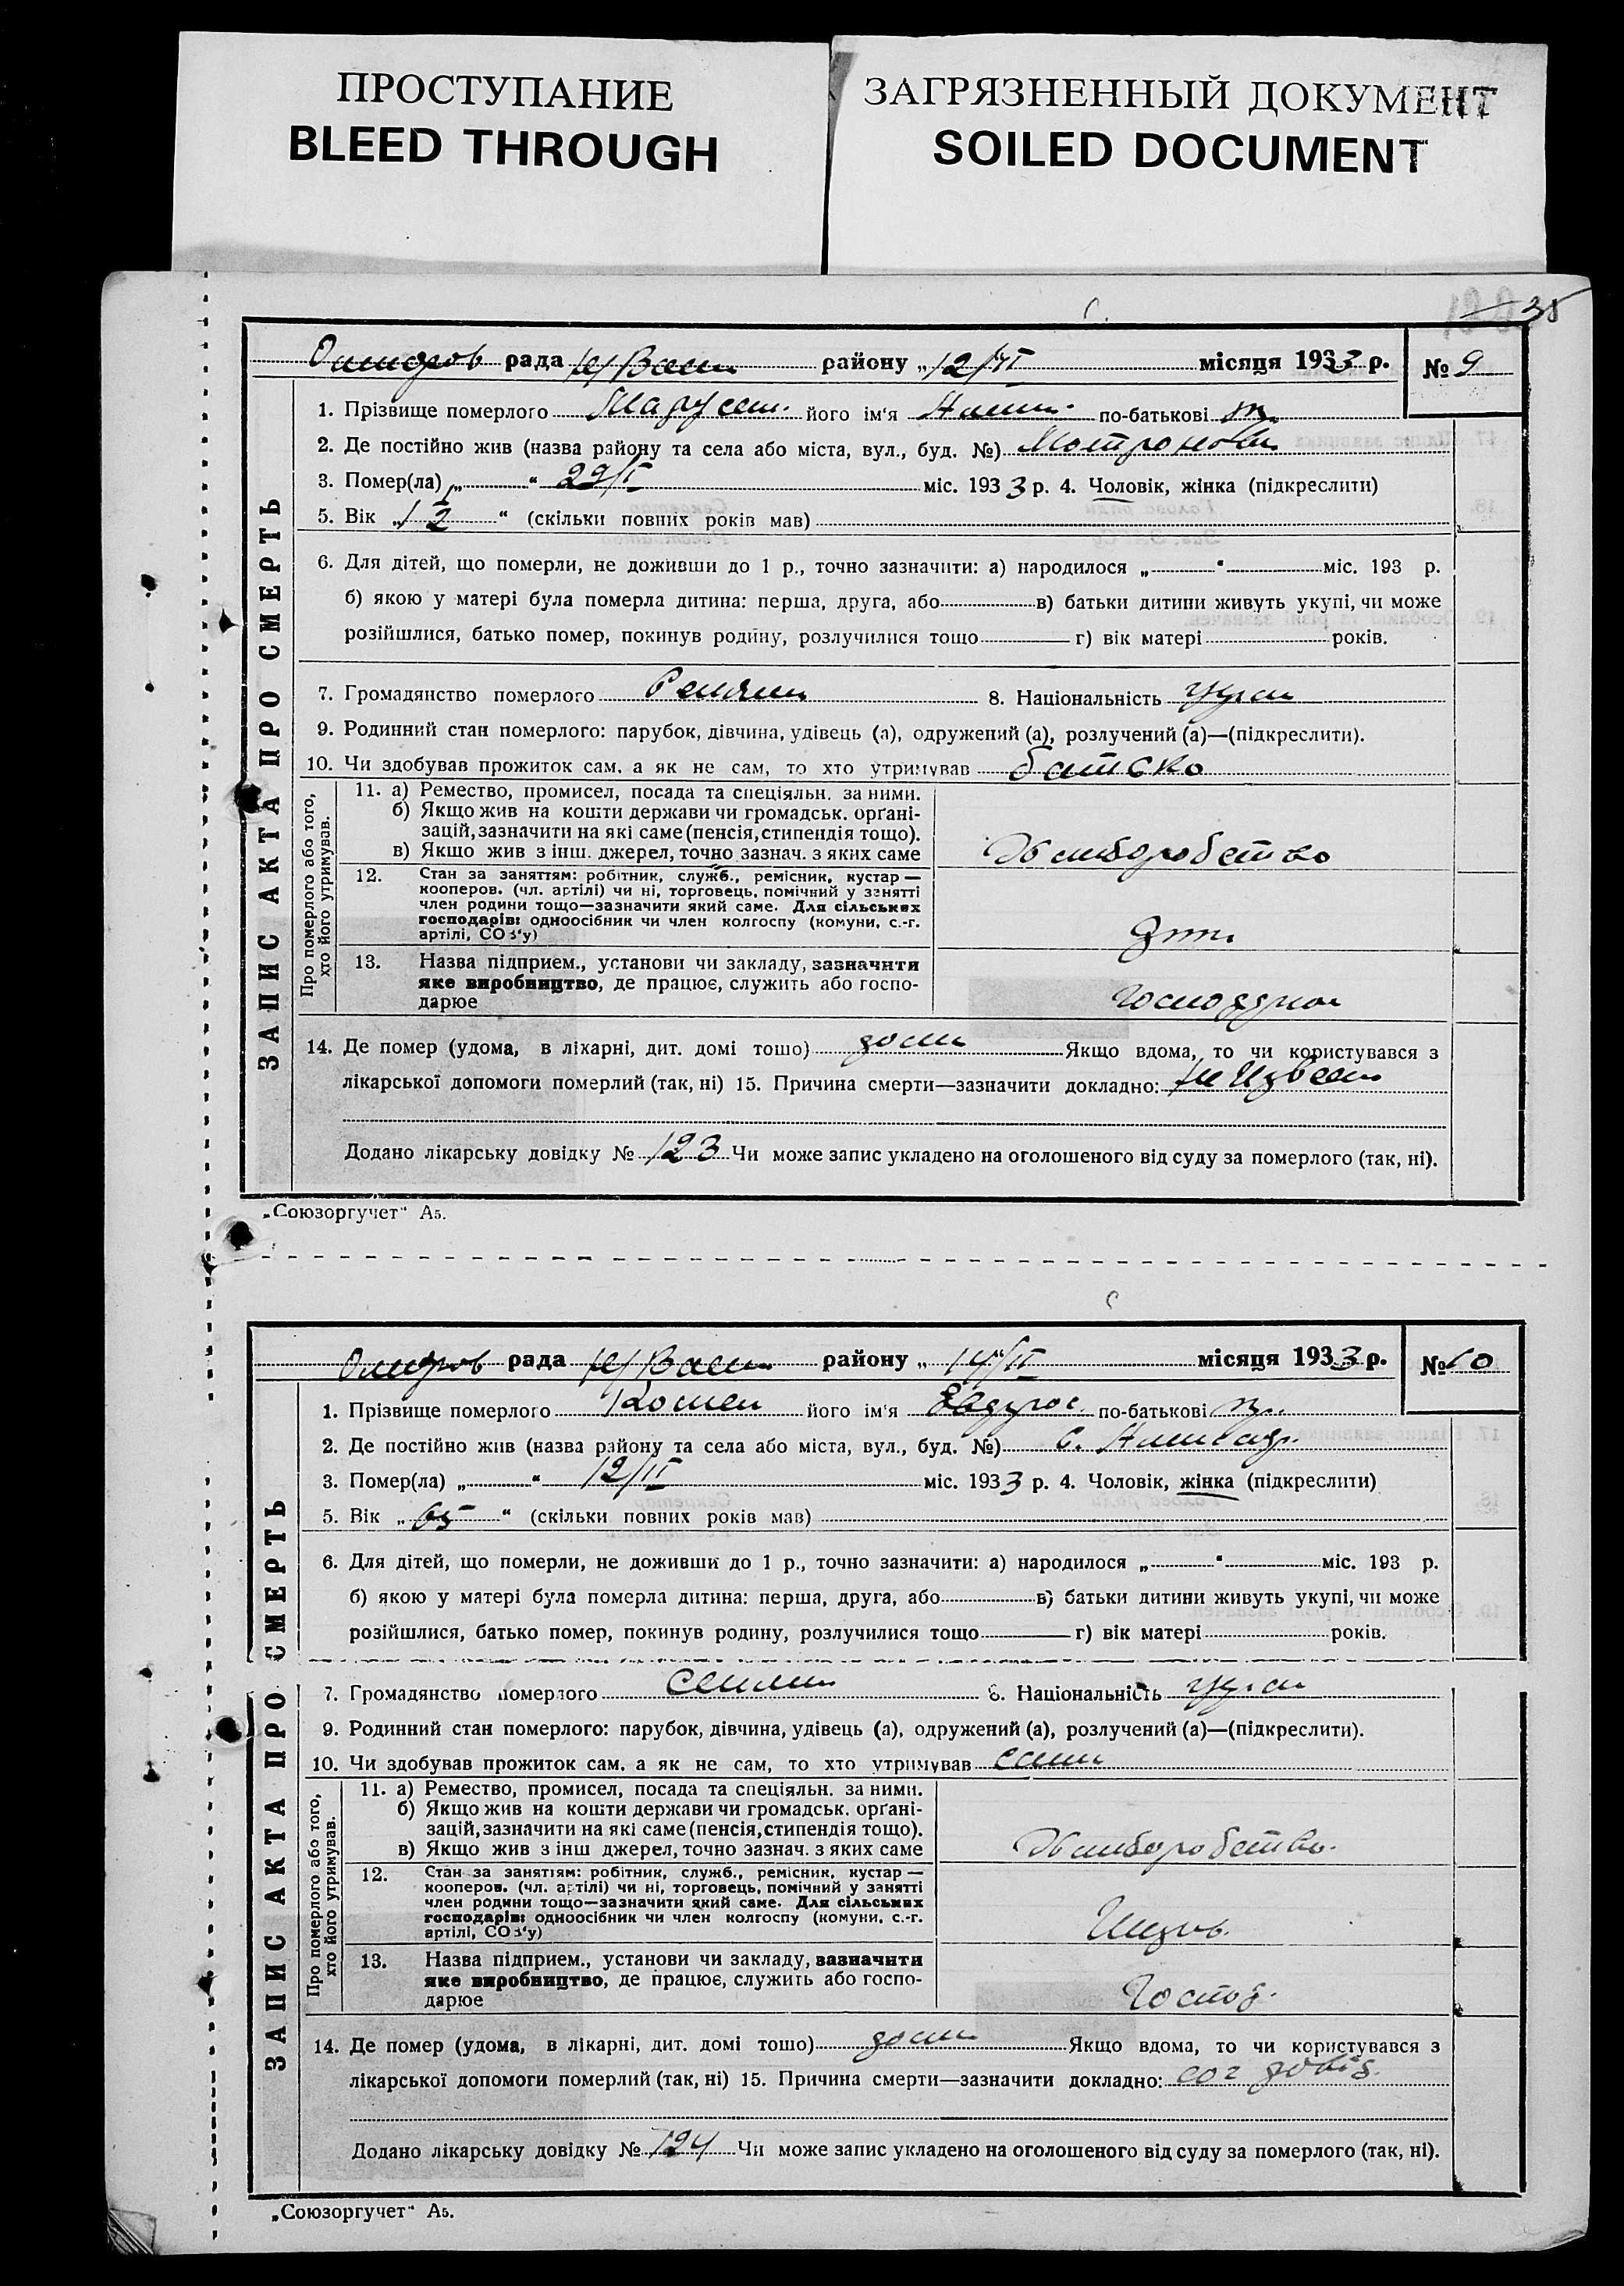 ПРОСТУПАНИЕ
BLEED THROUGH
ЗАГРЯЗНЕННЫЙ ДОКУМЕНТ
SOILED DOCUMENT
35
ЗАПИС АКТА ПРО СМЕРТЬ
рада району „12/VI місяця 1933 р. № 9
1. Прізвище померлого його ім'я по-батькові
2. Де постійно жив (назва району та села або міста, вул., буд. №)
3. Помер(ла) „ “ міс. 1933 р. 4. Чоловік, жінка (підкреслити)
5. Вік „ “ (скільки повних років мав)
6. Для дітей, що померли, не доживши до 1 р., точно зазначити: а) народилося „ “ міс. 193 р.
б) якою у матері була померла дитина: перша, друга, або в) батьки дитини живуть укупі, чи може
розійшлися, батько помер, покинув родину, розлучилися тощо г) вік матері років.
7. Громадянство померлого 8. Національність
9. Родинний стан померлого: парубок, дівчина, удівець (а), одружений (а), розлучений (а)—(підкреслити).
10. Чи здобував прожиток сам, а як не сам, то хто утримував батько
Про померлого або того, хто його утримував.
11. а) Ремество, промисел, посада та спеціяльн. за ними.
б) Якщо жив на кошти держави чи громадськ. орґані-
зацій, зазначити на які саме (пенсія, стипендія тощо).
в) Якщо жив з інш. джерел, точно зазнач. з яких саме
Хлиборобство
12. Стан за заняттям: робітник, служб., ремісник, кустар —
кооперов. (чл. артілі) чи ні, торговець, помічний у занятті
член родини тощо—зазначити який саме. Для сільських
господарів: одноосібник чи член колгоспу (комуни, с.-г.
артілі, СОЗ'у)
13. Назва підприєм., установи чи закладу, зазначити
яке виробництво, де працює, служить або госпо-
дарює
14. Де помер (удома, в ліхарні, дит. домі тощо) дома Якщо вдома, то чи користувався з
лікарської допомоги померлий (так, ні) 15. Причина смерти—зазначити докладно:
Додано лікарську довідку № 123 Чи може запис укладено на оголошеного від суду за померлого (так, ні).
„Союзоргучет“ А5.
ЗАПИС АКТА ПРО СМЕРТЬ
рада району „14/II місяця 1933 р. № 10
1. Прізвище померлого його ім'я по-батькові
2. Де постійно жив (назва району та села або міста, вул., буд. №)
3. Помер(ла) „ “ 12/II міс. 1933 р. 4. Чоловік, жінка (підкреслити)
5. Вік „65“ (скільки повних років мав)
6. Для дітей, що померли, не доживши до 1 р., точно зазначити: а) народилося „ “ міс. 193 р.
б) якою у матері була померла дитина: перша, друга, або в) батьки дитини живуть укупі, чи може
розійшлися, батько помер, покинув родину, розлучилися тощо г) вік матері років.
7. Громадянство померлого 8. Національність
9. Родинний стан померлого: парубок, дівчина, удівець (а), одружений (а), розлучений (а)—(підкреслити).
10. Чи здобував прожиток сам, а як не сам, то хто утримував
Про померлого або того, хто його утримував.
11. а) Ремество, промисел, посада та спеціяльн. за ними.
б) Якщо жив на кошти держави чи громадськ. орґані-
зацій, зазначити на які саме (пенсія, стипендія тощо).
в) Якщо жив з інш джерел, точно зазнач. з яких саме
Хлиборобство.
12. Стан за заняттям: робітник, служб., ремісник, кустар —
кооперов. (чл. артілі) чи ні, торговець, помічний у занятті
член родини тощо—зазначити який саме. Для сільських
господарів: одноосібник чи член колгоспу (комуни, с.-г.
артілі, СОЗ'у)
13. Назва підприєм., установи чи закладу, зазначити
яке виробництво, де працює, служить або госпо-
дарює
14. Де помер (удома, в лікарні, дит. домі тощо) дома Якщо вдома, то чи користувався з
лікарської допомоги померлий (так, ні) 15. Причина смерти—зазначити докладно:
Додано лікарську довідку № 124 Чи може запис укладено на оголошеного від суду за померлого (так, ні).
„Союзоргучет“ А5.